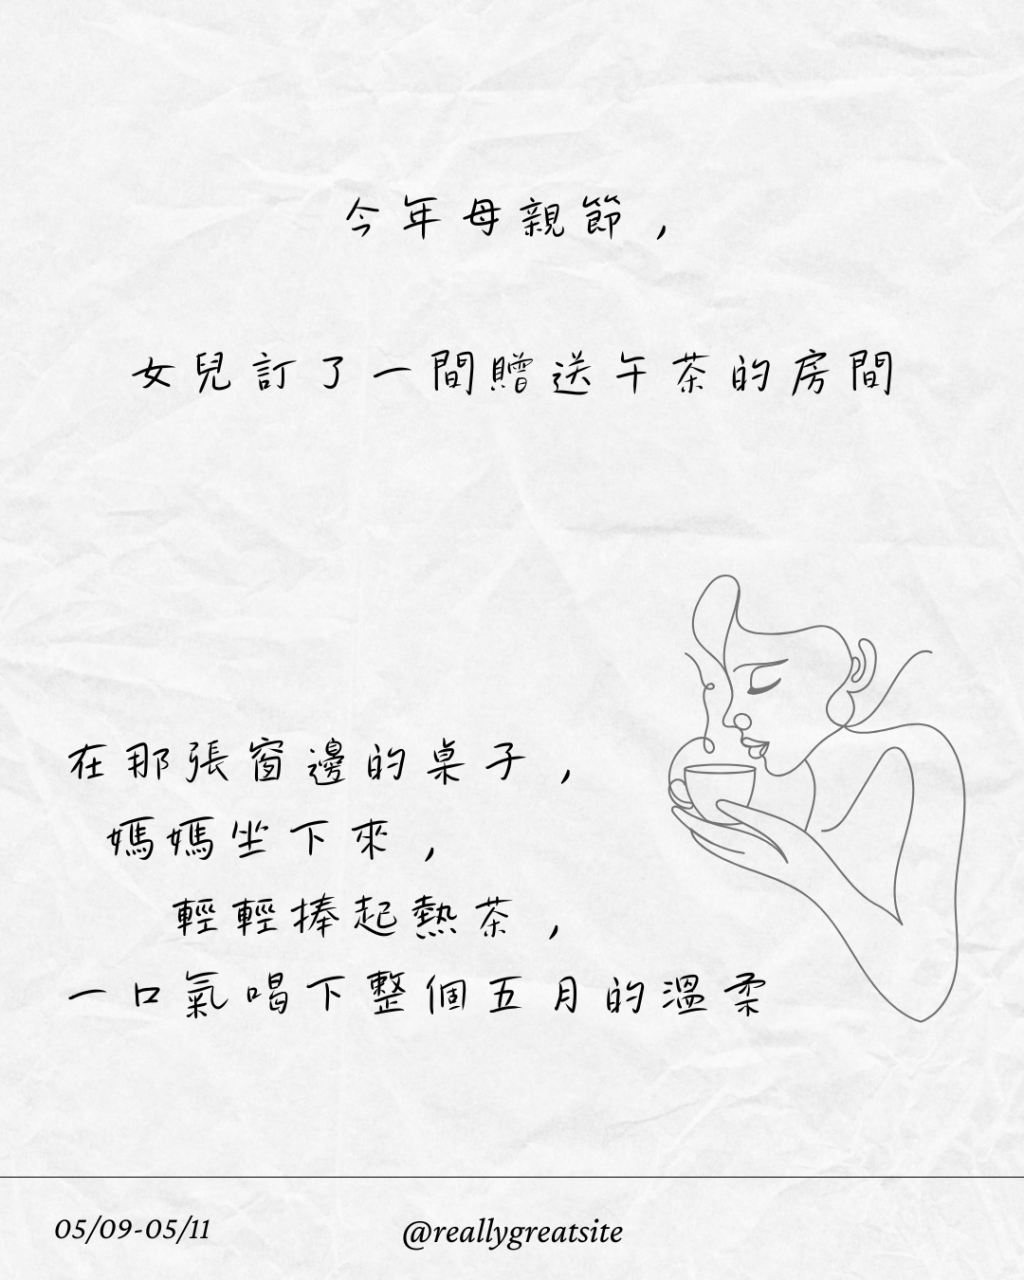 今年母親節，
女兒訂了一間贈送午茶的房間
在那張窗邊的桌子，
媽媽坐下來，
輕輕捧起熱茶，
一口氣喝下整個五月的溫柔
05/09-05/11
@reallygreatsite